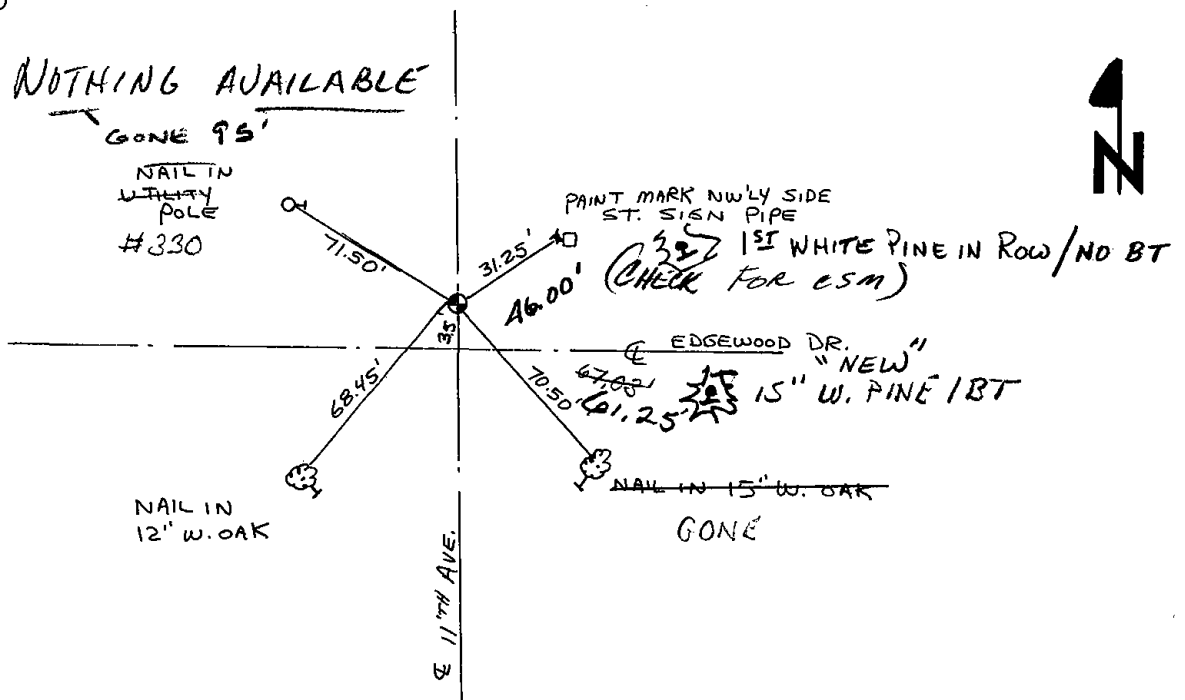 NOTHING AVAILABLE
GONE 95'
NAIL IN
UTILITY
POLE
#330
71.50'
N
PAINT MARK NW'LY SIDE
ST. SIGN PIPE
31.25'
1ST WHITE PINE IN ROW/NO BT
(CHECK FOR CSM)
46.00'
35'
℄ EDGEWOOD DR.
"NEW"
67.03'
61.25'
15" W. PINE / BT
68.45'
70.50'
NAIL IN
12" W. OAK
NAIL IN 15" W. OAK
GONE
℄ 11'TH AVE.